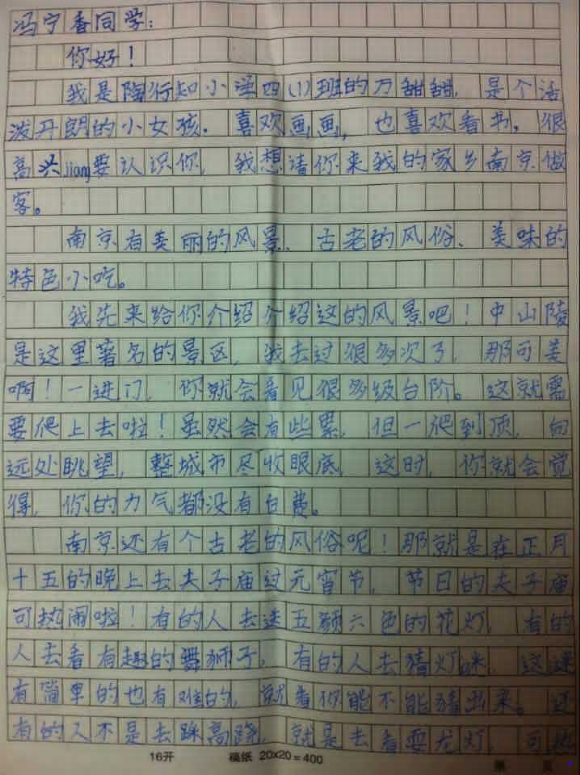 冯宁香同学：
你好！
我是陶行知小学四（1）班的万甜甜，是个活
泼开朗的小女孩。喜欢画画，也喜欢看书。很
高兴jiang要认识你，我想请你来我的家乡南京做
客。
南京有美丽的风景、古老的风俗、美味的
特色小吃。
我先来给你介绍介绍这的风景吧！中山陵
是这里著名的景区，我去过很多次了，那可美
啊！一进门，你就会看见很多级台阶。这就需
要爬上去啦！虽然会有些累，但一爬到顶，向
远处眺望，整城市尽收眼底，这时，你就会觉
得，你的力气都没有白费。
南京还有个古老的风俗呢！那就是在正月
十五的晚上去夫子庙过元宵节，节日的夫子庙
可热闹啦！有的人去迷五颜六色的花灯，有的
人去看有趣的舞狮子，有的人去猜灯谜，这迷
有简单的也有难的，就看你能不能猜出来。还
有的人不是去踩高跷，就是去看耍龙灯，可热
16开 稿纸 20×20=400 第 页